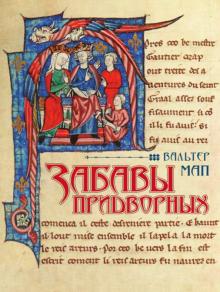 pres ceo ke mestr
Gautier Map
out treite des a
ventures du seint
Graal assez souf
fisaument si co
il li fu avis si
fu avis au rei
ВАЛЬТЕР
МАП
ЗАБАВЫ
ПРИДВОРНЫХ
comenca il ceste derreniere partie. E kaunt
il lout mise ensemble il lapela la mort
le rei arturs. Por ceo ke vers la fin est
escrit coment li reis arturs fu navrez en